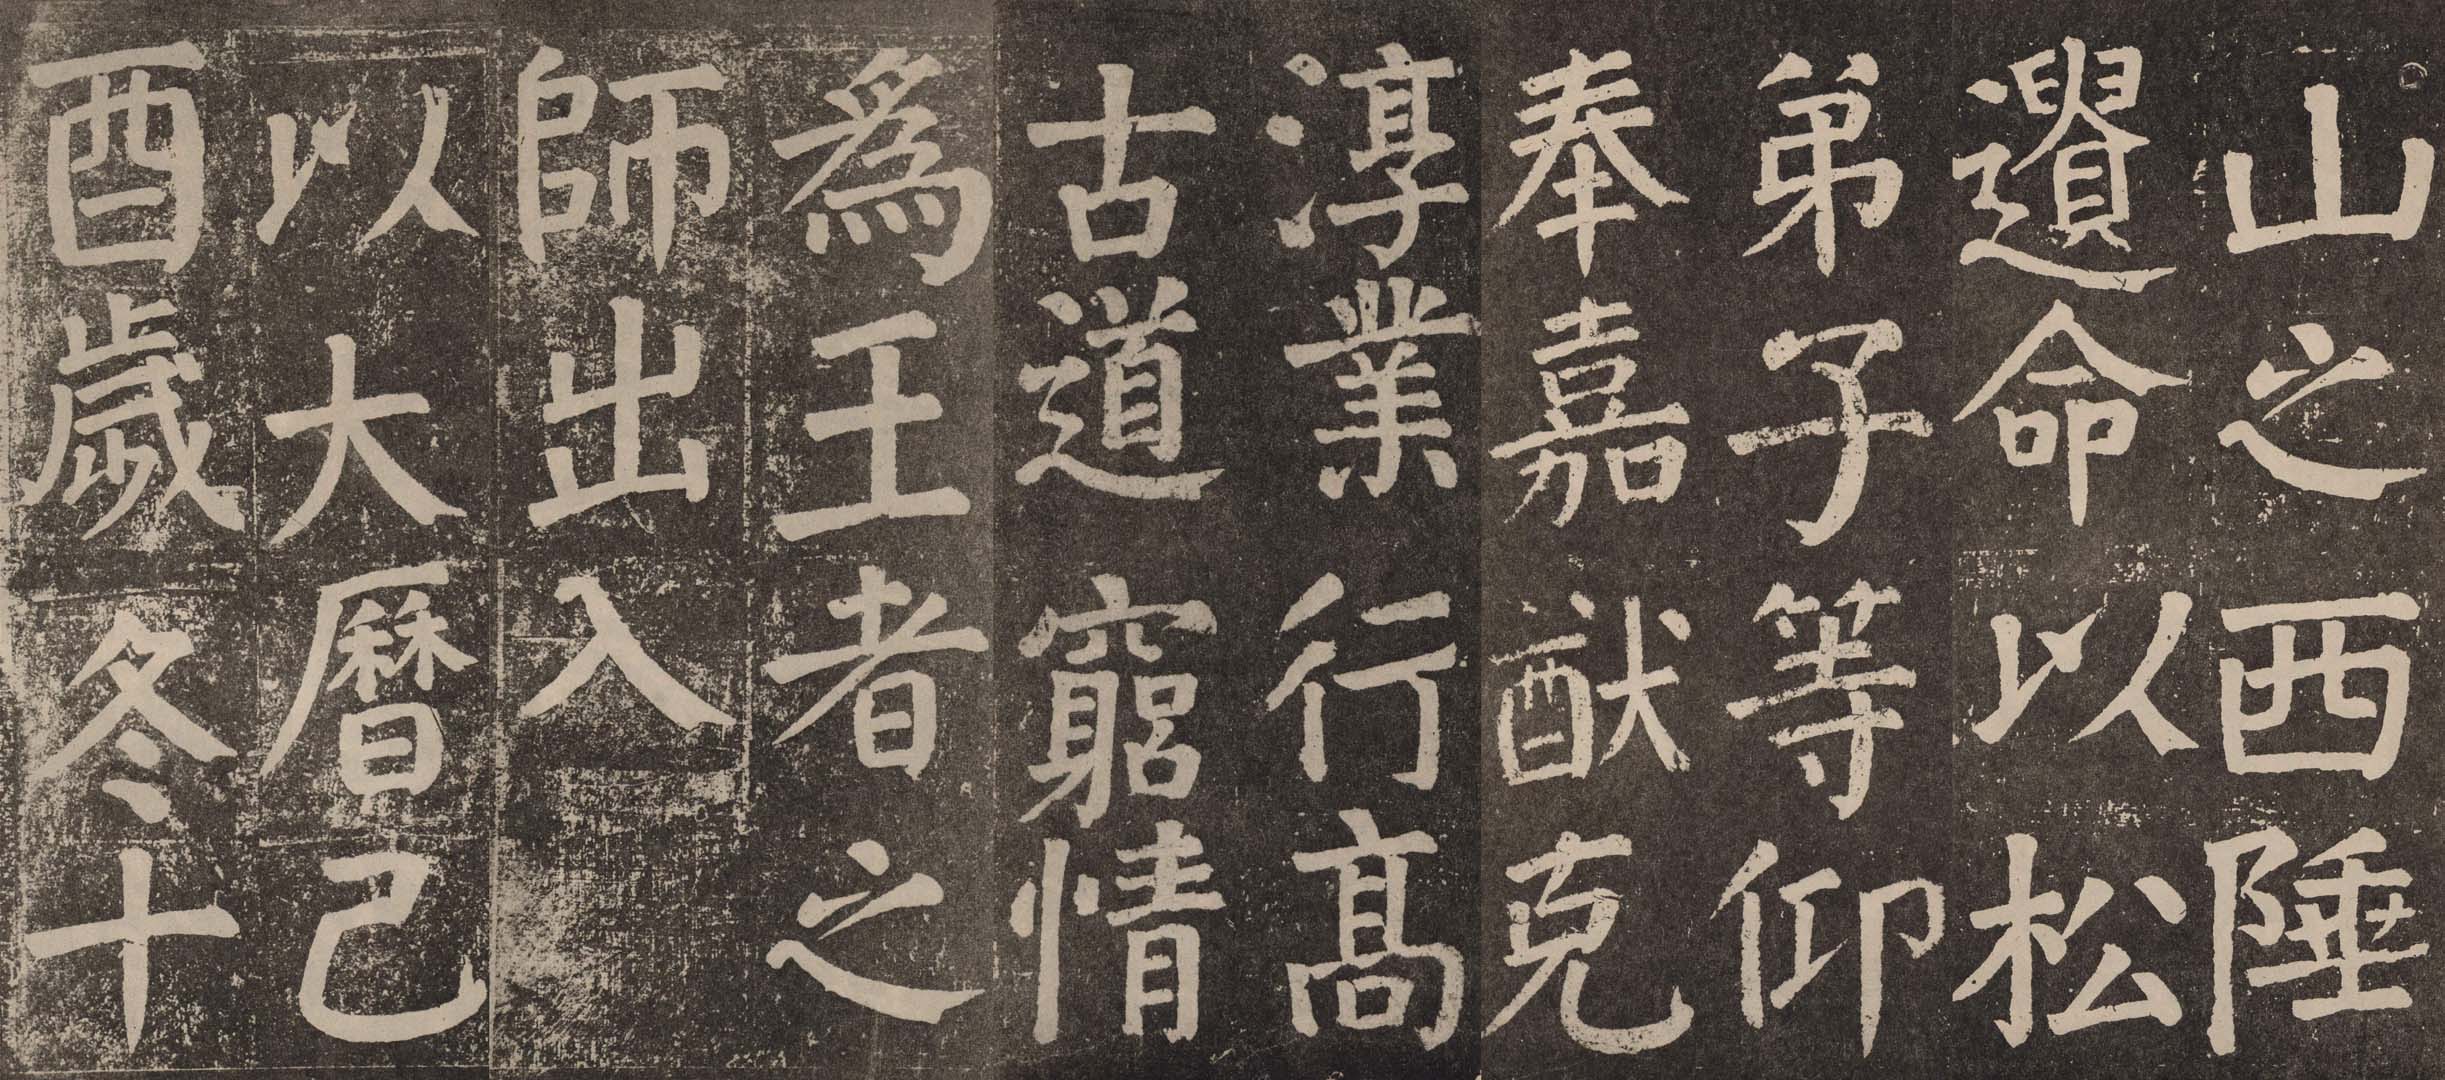 山之西陲
遺命以松
弟子等仰
奉嘉猷克
淳業行高
古道窮情
為王者之
師出入
以大曆己
酉歲冬十